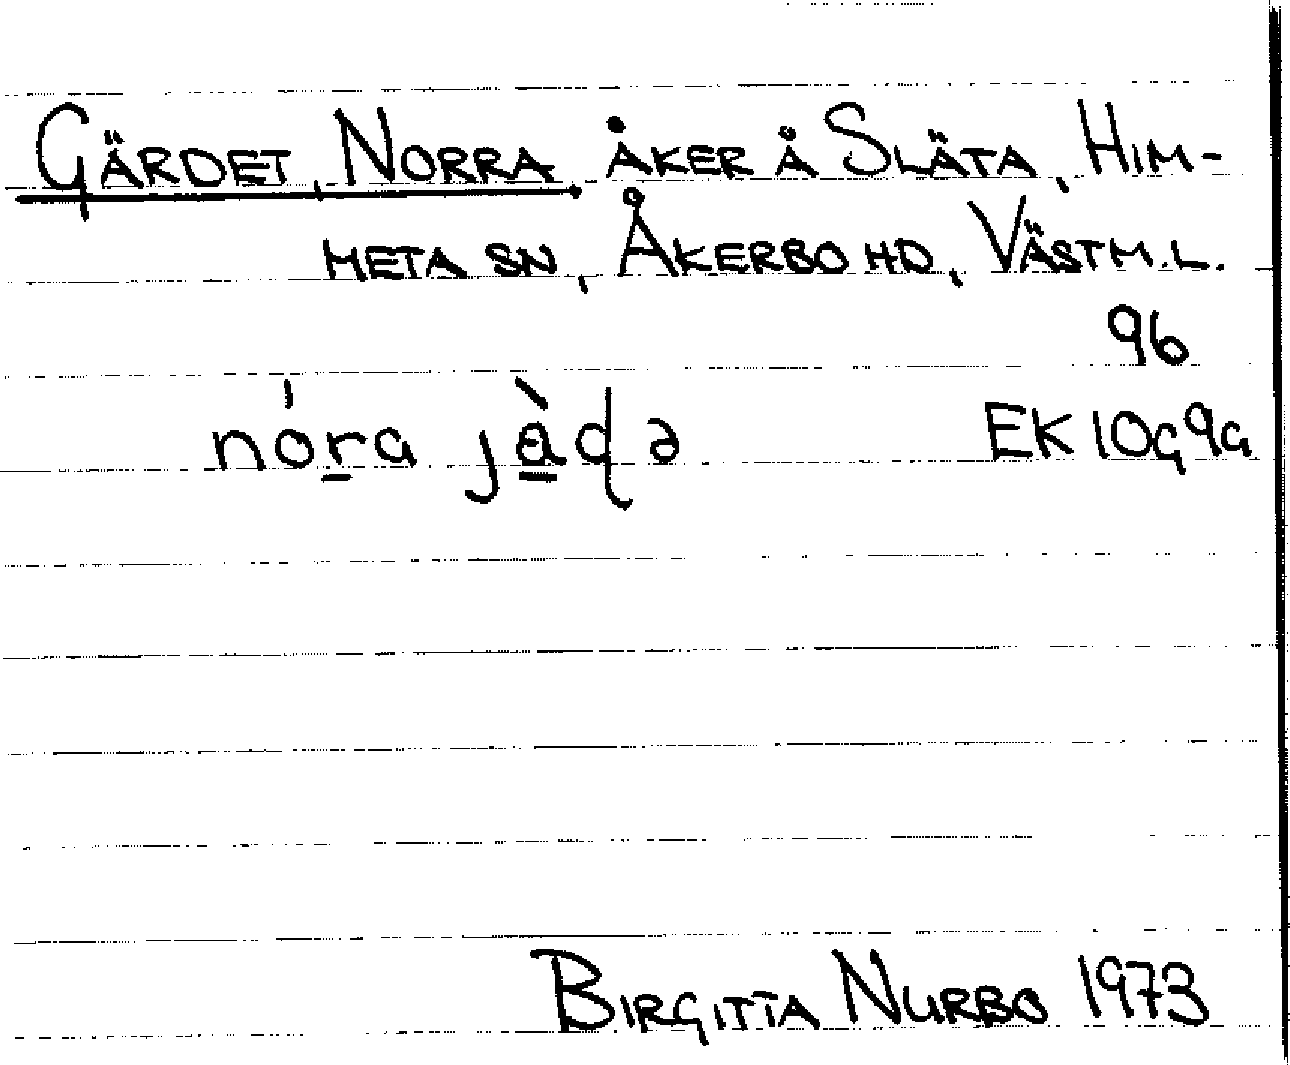 GÄRDET, NORRA ÅKER Å SLÄTA, HIM-
META SN, ÅKERBO HD, VÄSTM.L.
96
nóra jàɖə EK 10G9G
BIRGITTA NURBO 1973